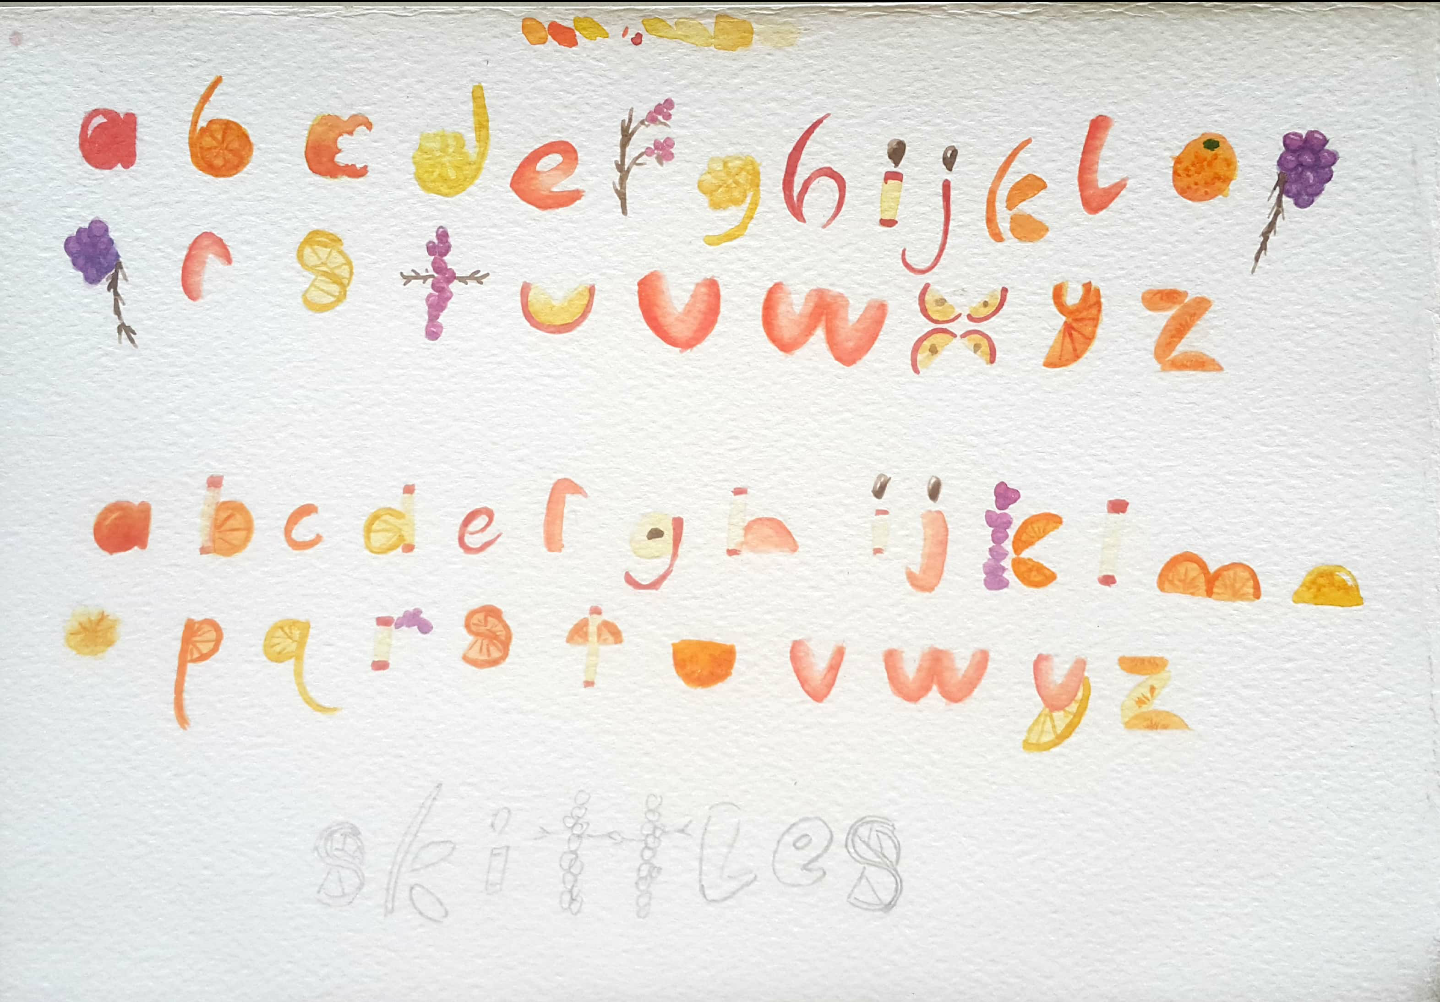 a b c d e f g h i j k l o p
q r s t u v w x y z
a b c d e f g h i j k l m n
o p q r s t u v w y z
skittles